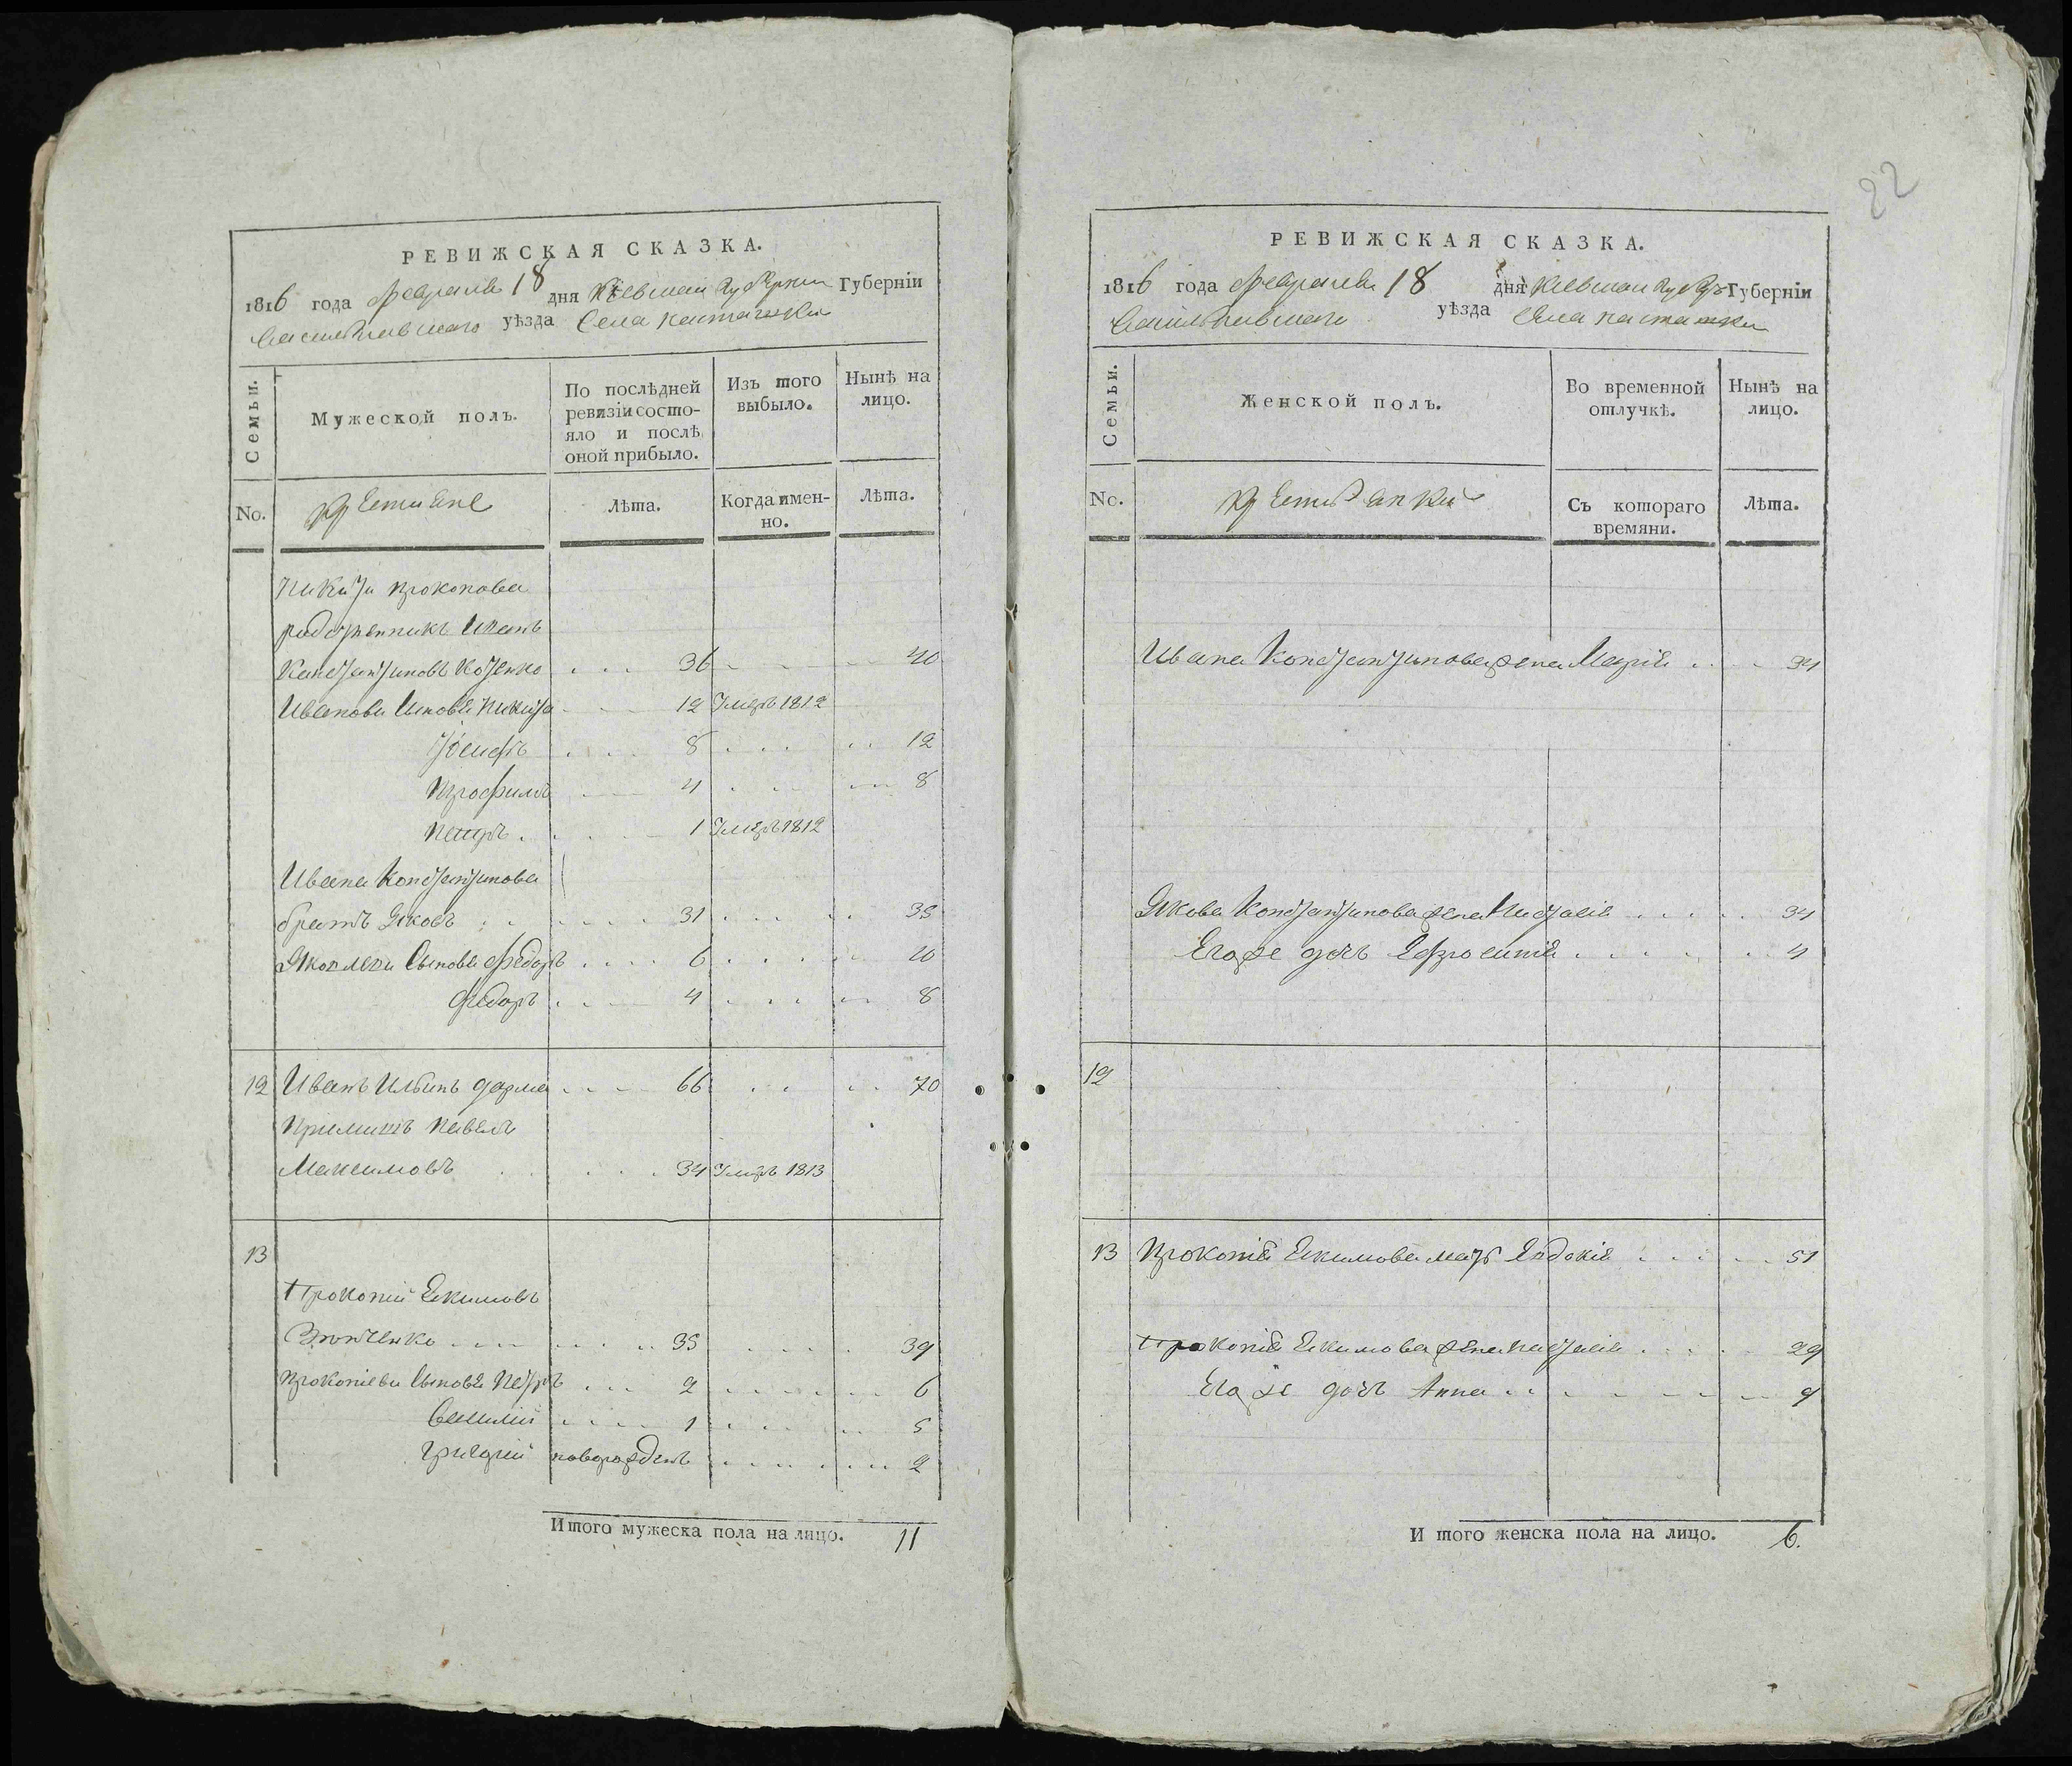 РЕВИЖСКАЯ СКАЗКА.
1816 года февраля 18 дня Киевской Губерніи
Васильковскаго уѣзда Села
Семьи.
Мужеской полъ.
По послѣдней ревизіи состояло и послѣ оной прибыло.
Изъ того выбыло.
Нынѣ на лицо.
No.
крестьяне
Лѣта.
Когда именно.
Лѣта.
Никиты Прокопова
Иванъ
Константиновъ 36 40
Ивановы сыновья Никита 12 Умеръ 1812
Іосифъ 8 12
Трофимъ 4 8
Петръ 1 Умеръ 1812
Ивана Константинова
братъ Яковъ 31 35
Яковлевы сыновья Федоръ 6 10
Федоръ 4 8
12 Иванъ Ильинъ 66 70
Примытъ Павелъ
Максимовъ 34 Умеръ 1813
13
Прокопій Екимовъ
35 39
Прокопіевы сыновья Петръ 2 6
Василій 1 5
Григорій новорожденъ 2
Итого мужеска пола на лицо. 11
22
РЕВИЖСКАЯ СКАЗКА.
1816 года февраля 18 дня Киевской Губерніи
Васильковскаго уѣзда Села
Семьи.
Женской полъ.
Во временной отлучкѣ.
Нынѣ на лицо.
No.
крестьянки
Съ котораго времяни.
Лѣта.
Ивана Константинова жена Марія 34
Якова Константинова жена Наталія 34
Его же дочь Ефросинія 4
12
13 Прокопія Екимова мать Евдокія 51
Прокопія Екимова жена Наталія 29
Его же дочь Анна 9
Итого женска пола на лицо. 6.